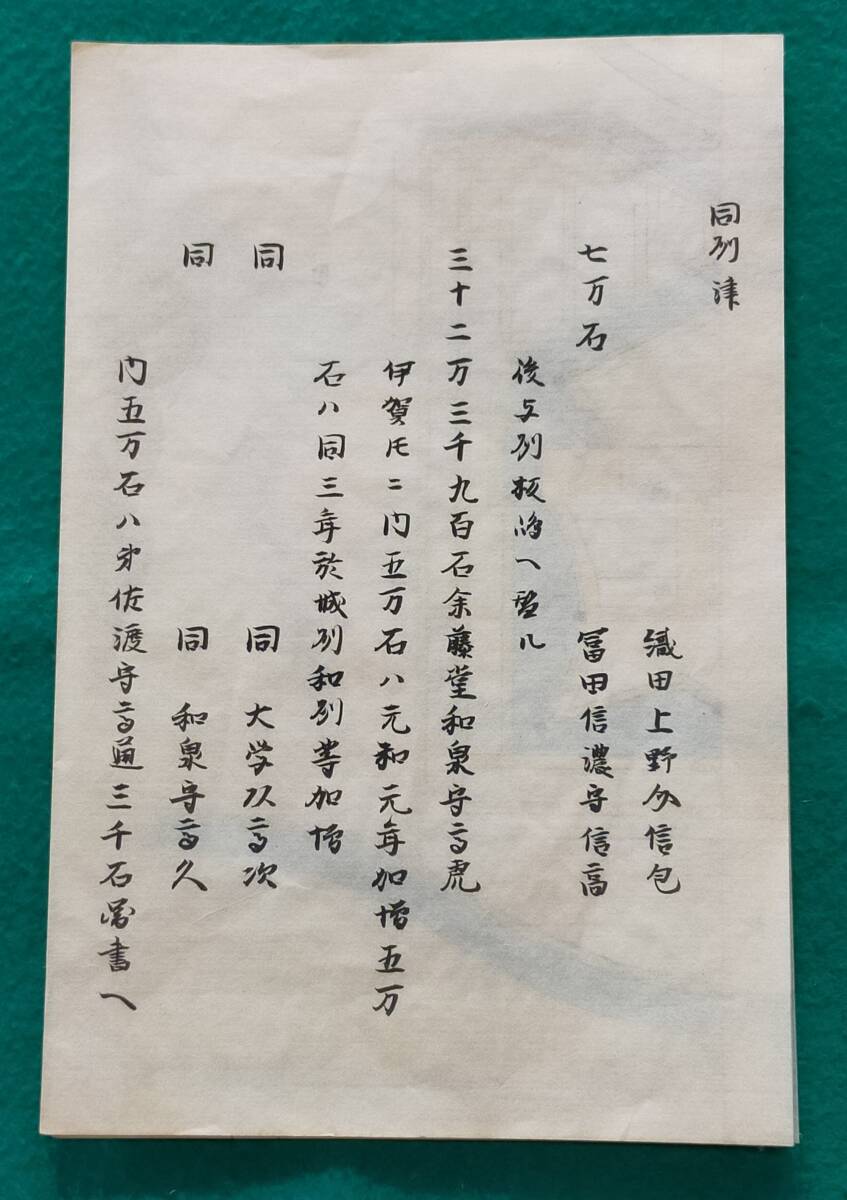 同刕津
織田上野介信包
七万石 冨田信濃守信高
後与刕板嶋へ替ル
三十二万三千九百石余藤堂和泉守高虎
伊賀氏ニ内五万石ハ元和元年加増五万
石ハ同三年於城刕和刕等加増
同 同 大学頭高次
同 同 和泉守高久
内五万石ハ弟佐渡守高通三千石図書へ